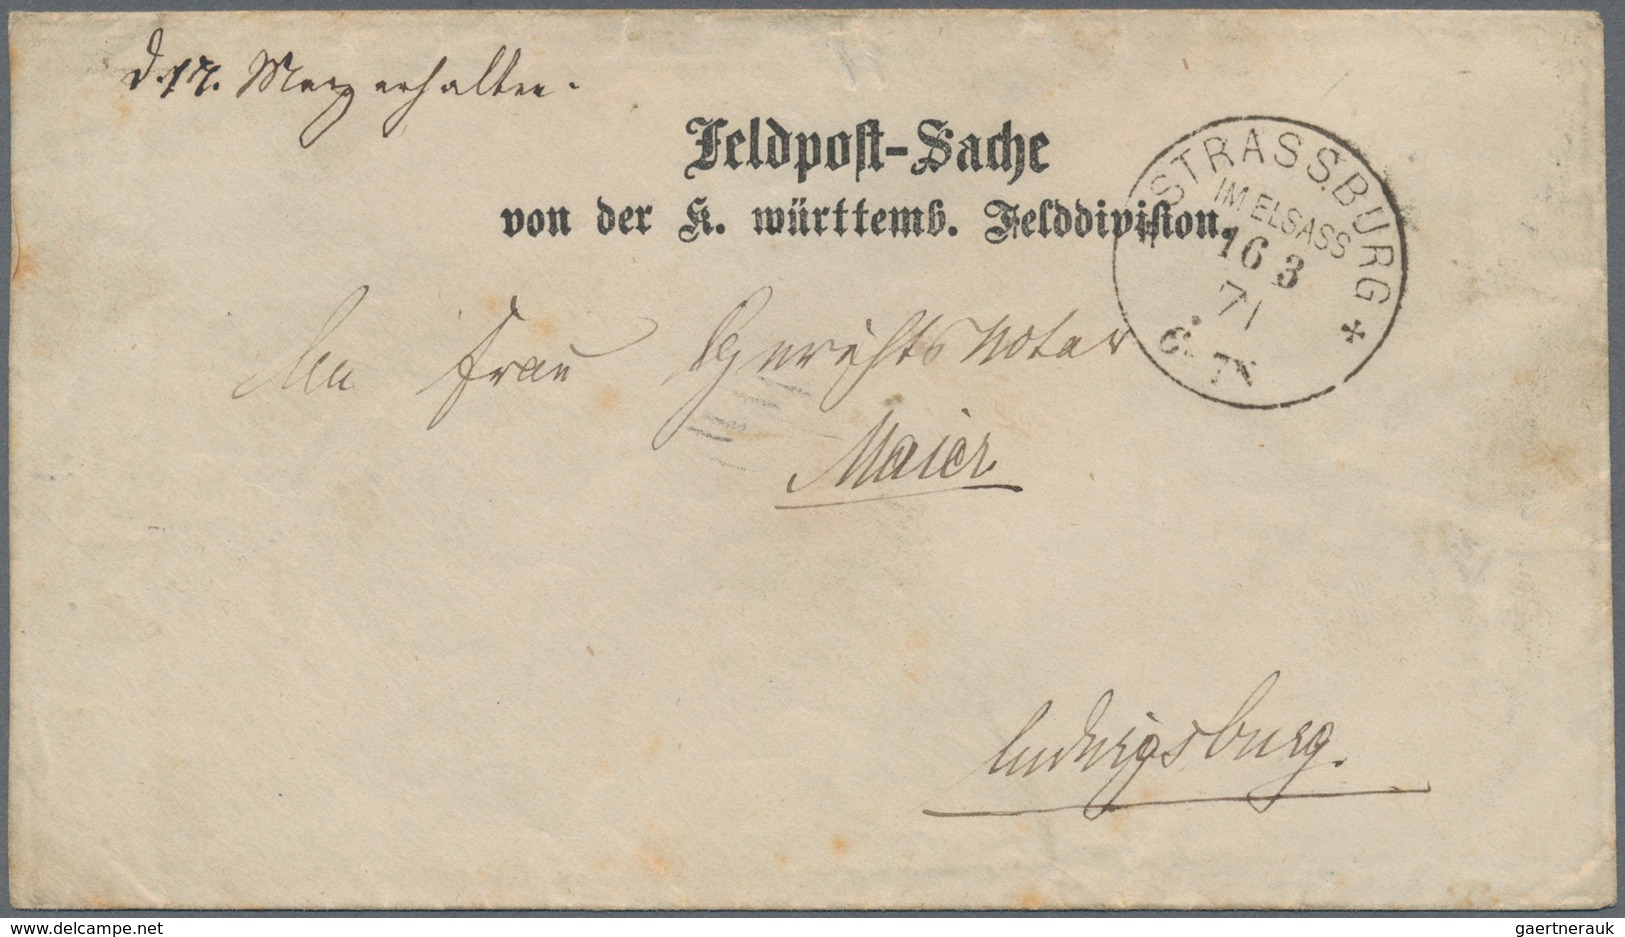 d. 17. Merz erhalten.
Feldpost-Sache
von der K. württemb. Felddivision.
STRASSBURG
IM ELSASS
16 3
71
6-7N
An Frau Gerichtsnotar
Maier
Ludwigsburg.
www.delcampe.net
gaertnerauk